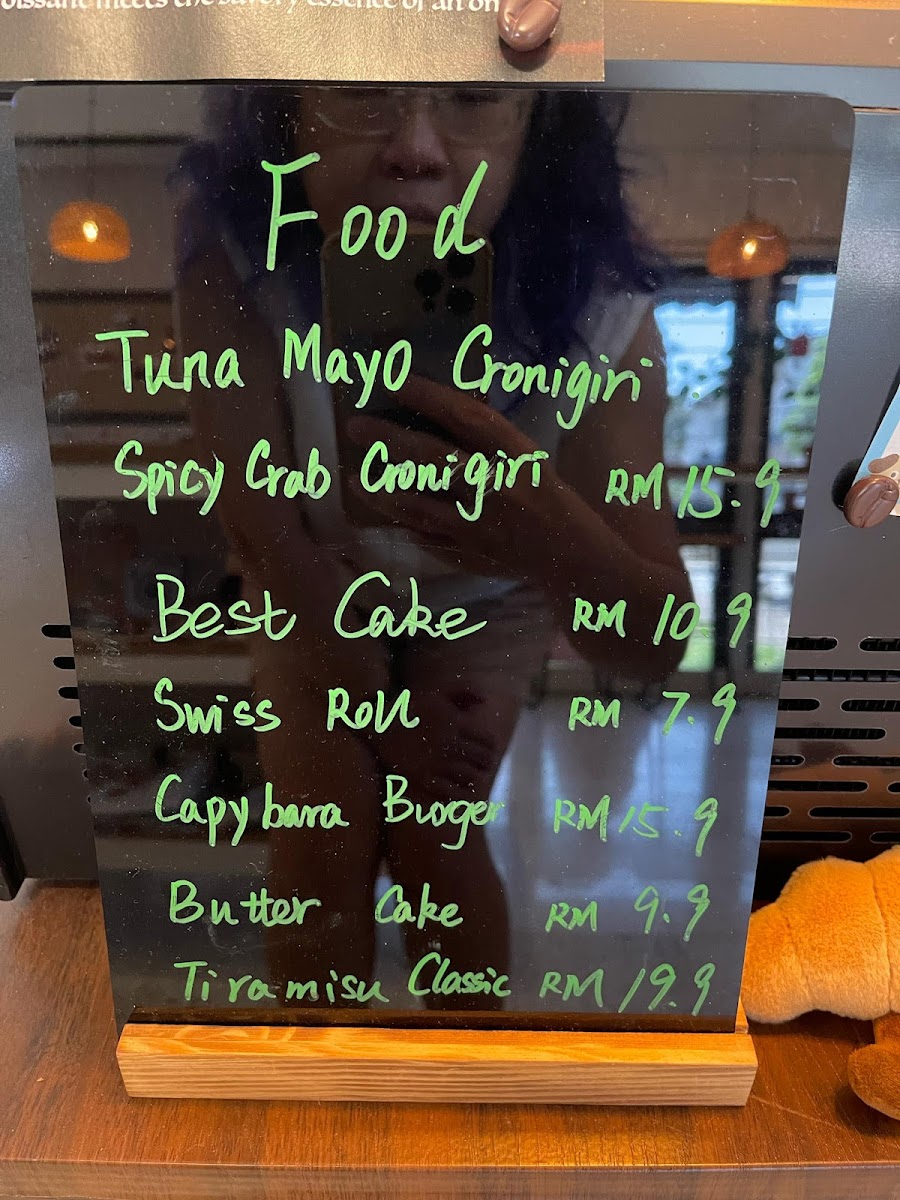 oissant meets the savory essence of an on
Food
Tuna Mayo Cronigiri
Spicy Crab Cronigiri RM 15.9
Best Cake RM 10.9
Swiss Roll RM 7.9
Capybara Burger RM 15.9
Butter Cake RM 9.9
Tiramisu Classic RM 19.9